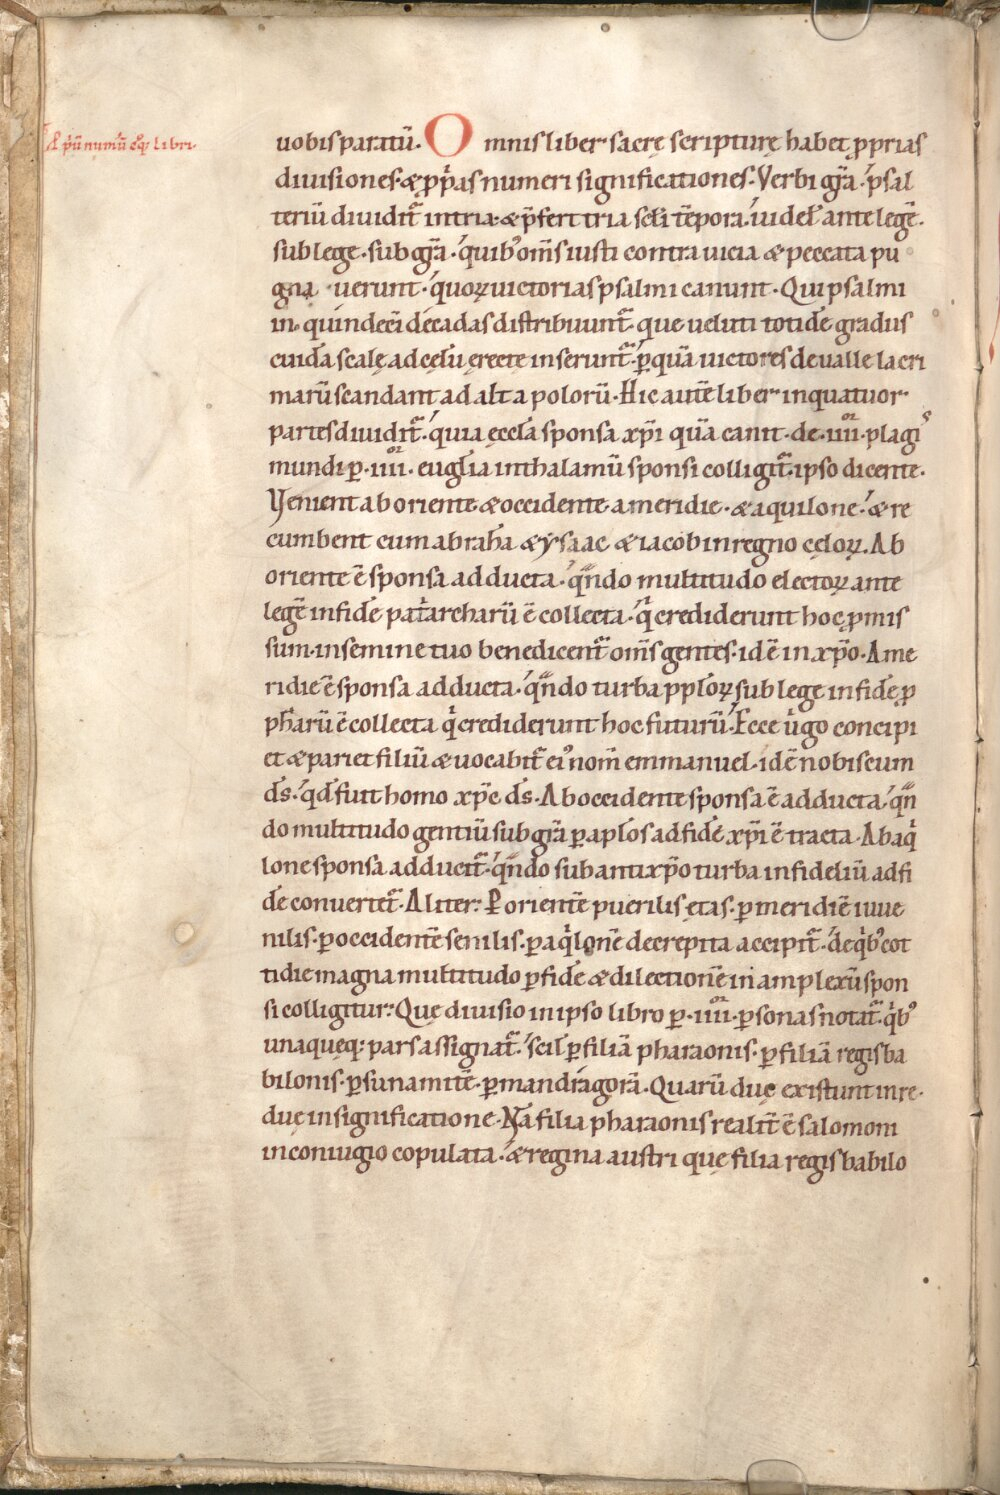 uobis paratū. Omnis liber sacrę scripturę habet ꝓprias
diuisiones. & ꝓp̃as numeri significationes. Verbi gr̄a. psal
teriū diuidit̃ in tria. & p̃fert tria scl̄i tēpora. uidel᷒ ante legē.
sub lege. sub gr̄a. quib᷒ om̄s iusti contra uicia & peccata pu
gna uerunt. quoꝝ uictorias psalmi canunt. Qui psalmi
in quindecī decadas distribuunt̃. que ueluti totidē gradus
cuidā scalę ad cęlū ęrectę inserunt̃. ꝑ quā uictores de ualle lacri
marū scandant ad alta poloru̅. Hic autē liber in quatuor
partes diuidit̃. quia ęccl̄a sponsa xp̄i quā canit. de .iiii.or plagis
mundi ꝑ .iiii.or euglīa in thalamū sponsi colligit̃. ipso dicente.
Venient ab oriente & occidente. a meridie. & aquilone. & re
cumbent cum abrahā & ysaac & iacob in regno cęloꝝ. Ab
oriente ē sponsa adducta. qn̄do multitudo electoꝝ ante
legē in fide pat̃archarū ē collecta. qͥ crediderunt hoc ꝓmis
sum. in semine tuo benedicent̃ om̄s gentes. id ē in xp̄o. A me
ridie ē sponsa adducta. qn̄do turba pplōꝝ sub lege in fide ꝓ
ph̄arū ē collecta qͥ crediderunt hoc futurū. Ecce uͥgo concipi
et & pariet filiū & uocabit̃ ei᷒ nom̄ emmanuel. id ē nobiscum
ds̄. qd̄ fuit homo xp̄c ds̄. Ab occidente sponsa ē adducta. qn̄
do multitudo gentiū sub gr̄a ꝑ aplōs ad fidē xp̄i ē tracta. Ab aqͥ
lone sponsa adducit̃. qn̄do sub antixp̄o turba infideliū ad fi
dē conuertet̃. Aliter. ꝑ orientē puerilis ętas. ꝑ meridiē iuue
nilis. ꝑ occidentē senilis. ꝑ aqͥlonē decrepita accipit̃. de qͥb᷒ cot
tidie magna multitudo ꝑ fidē & dilectionē in amplexū spon
si colligitur. Quę diuisio in ipso libro ꝑ .iiii.or ꝑsonas notat̃. qͥb᷒
unaqueq; pars assignat̃. scil᷒ ꝑ filiā pharaonis. ꝑ filiā regis ba
bilonis. ꝑ sunamitē. ꝑ mandragorā. Quarū duę existunt in re.
duę in significatione. Nā filia pharaonis realit̄ ē salomoni
in coniugio copulata. & regina austri quę filia regis babilo